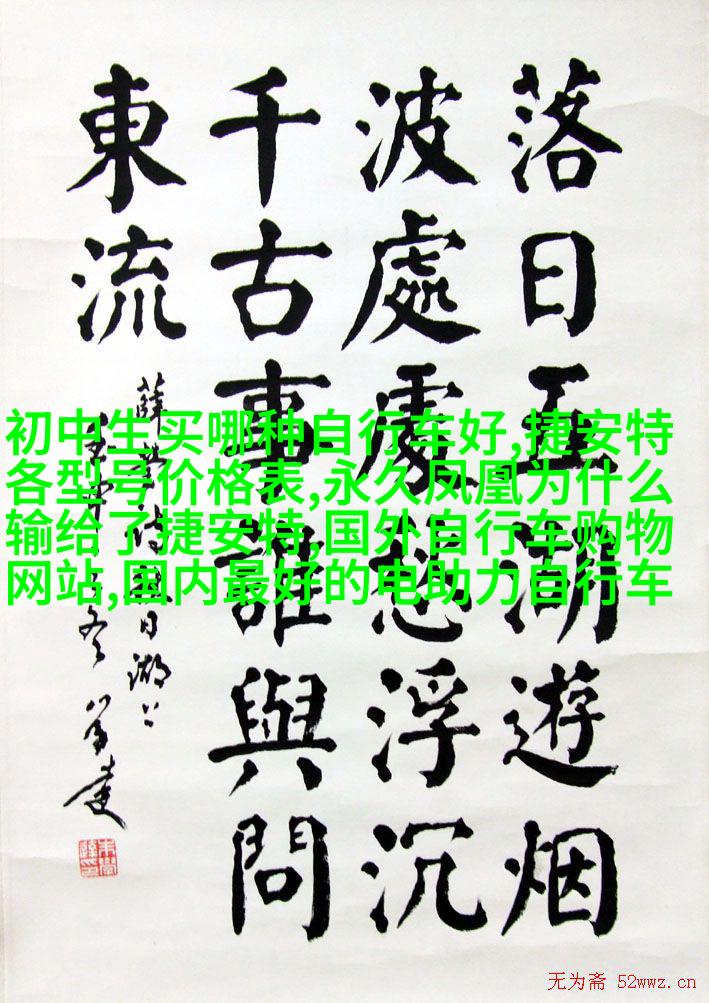 落日五湖遊烟
波處處愁浮沉
千古事誰與問
東流
薛瑩詩秋日湖上
初中生买哪种自行车好,捷安特
各型号价格表,永久凤凰为什么
输给了捷安特,国外自行车购物
网站,国内最好的电助力自行车
无为斋 52wwz.cn